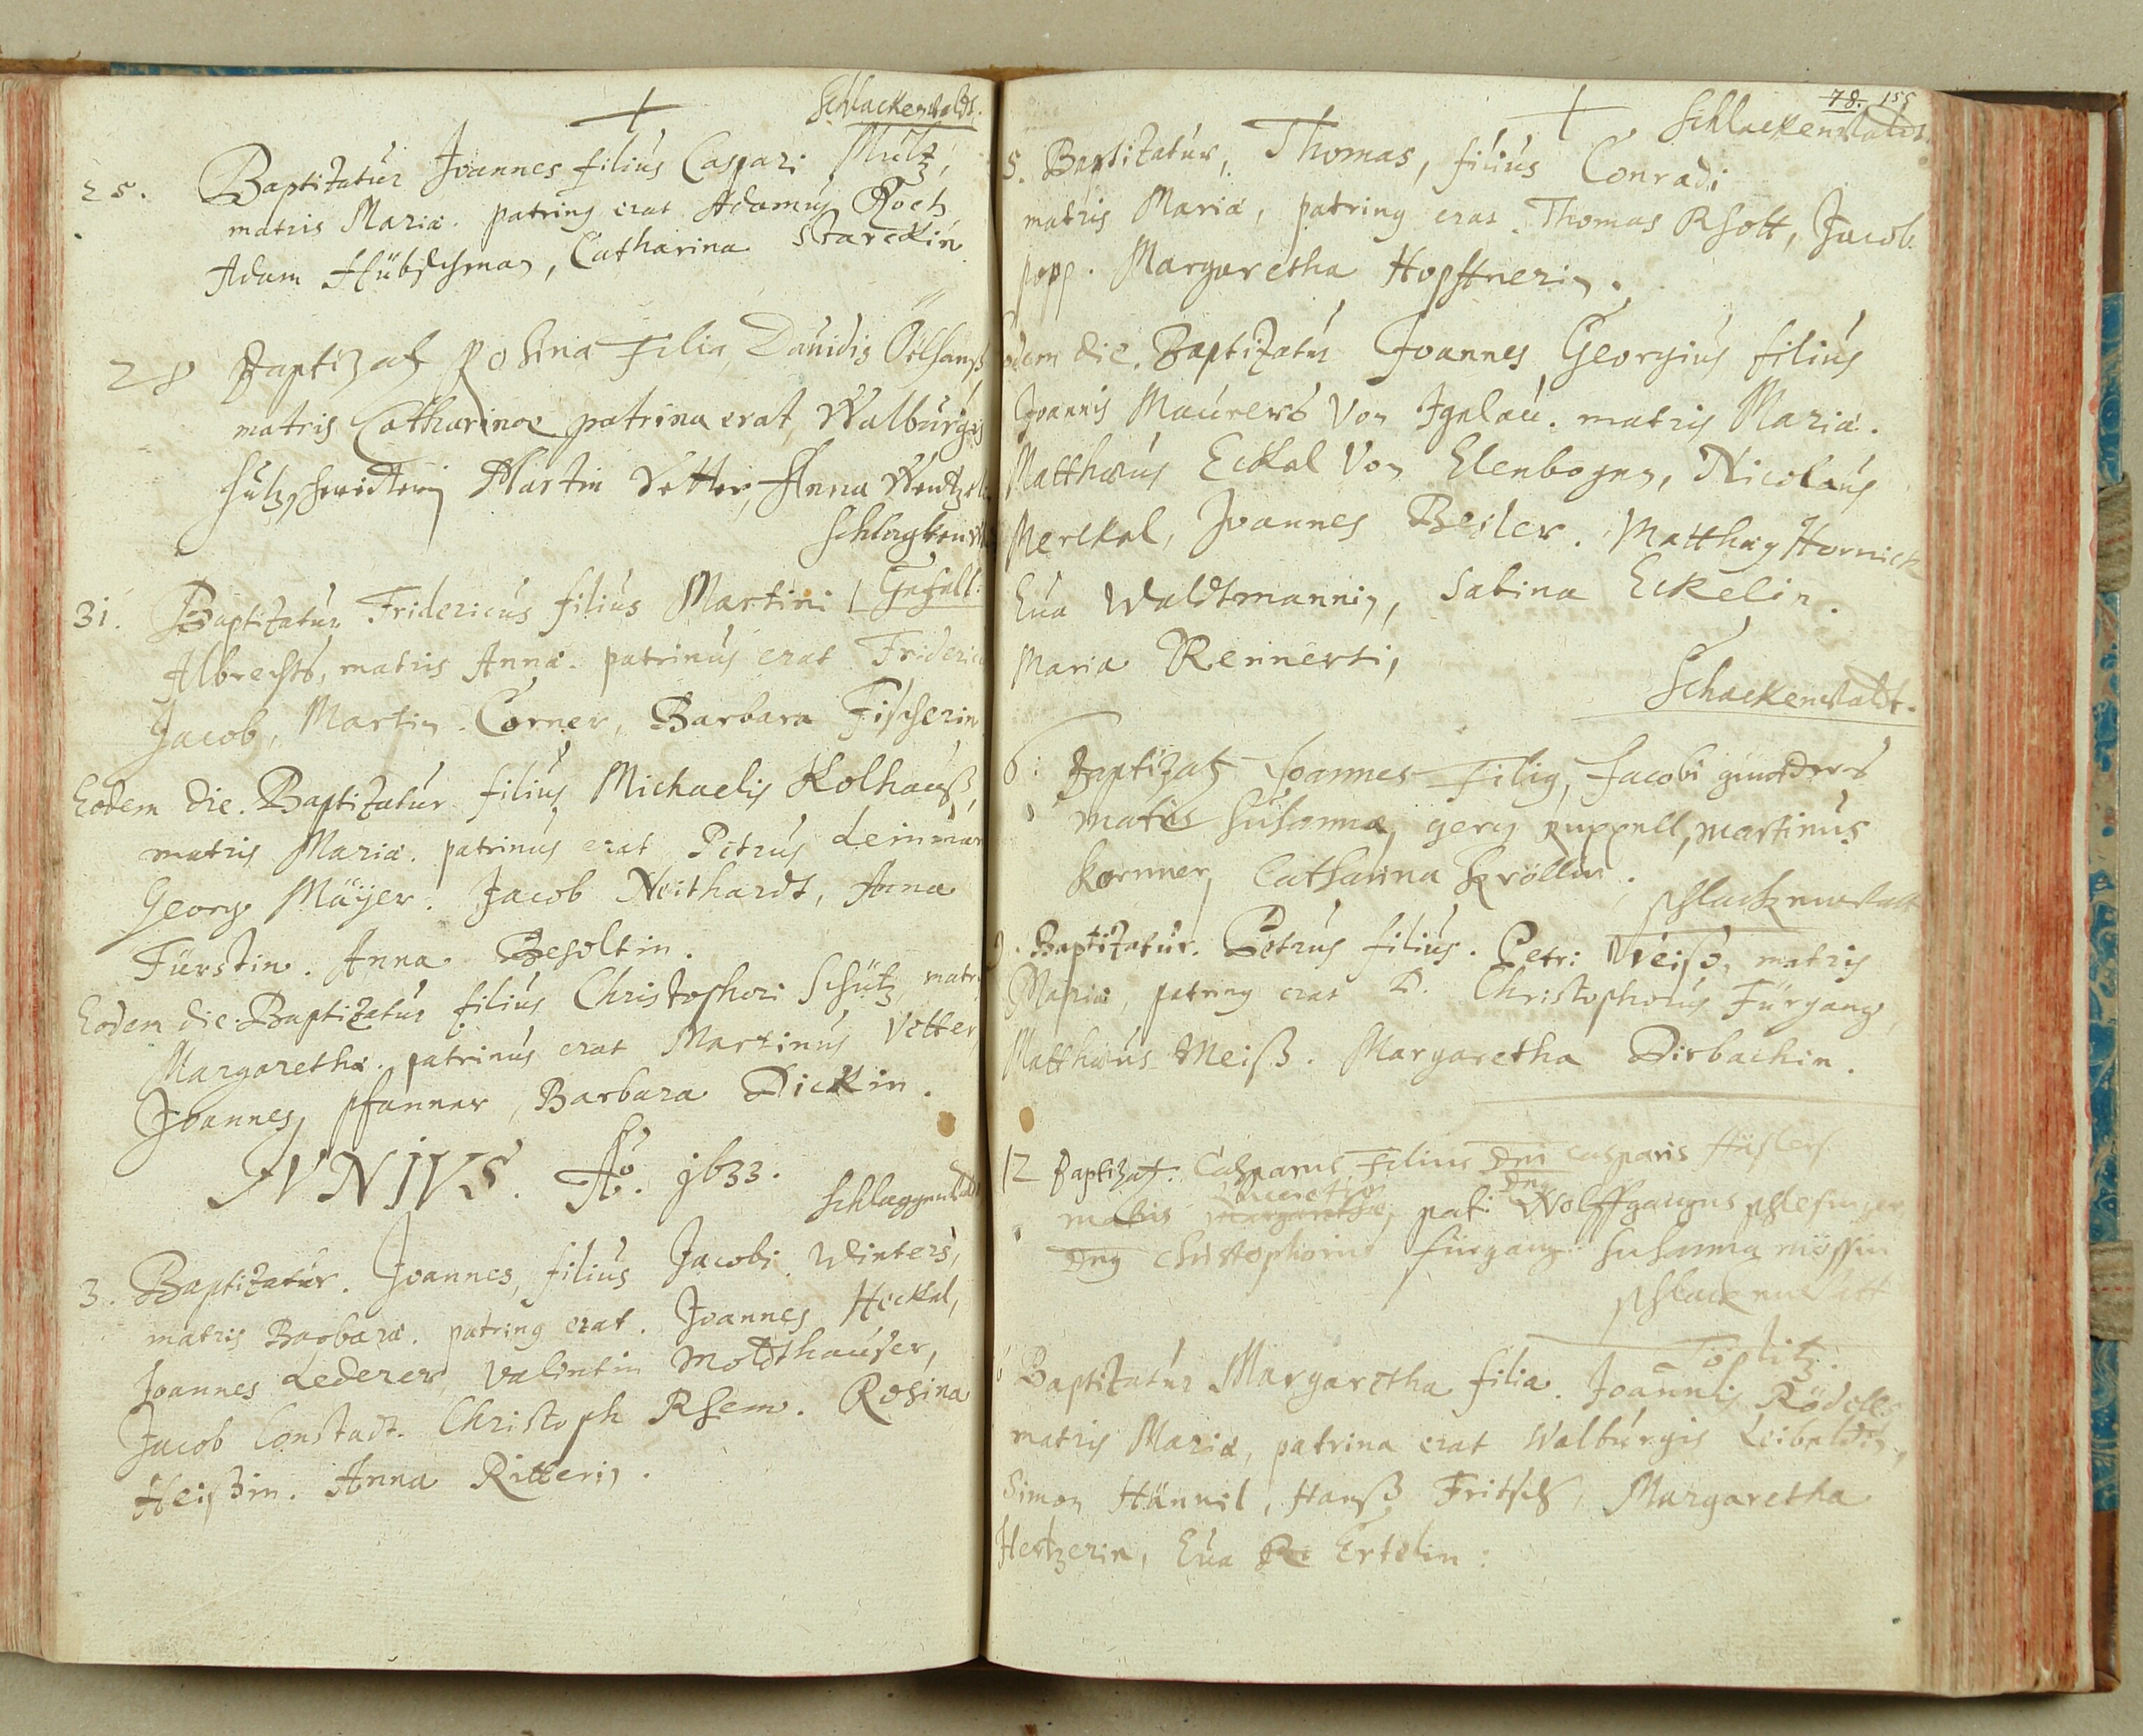 Schlackenwaldt.
25. Baptizatur Joannes filius Caspari Mütz,
matris Mariæ. patrinus erat Adamus Koch
Adam Hübschman, Catharina Starckin
28 Baptizat Rosina Filia, Dauidis
matris Catharinæ patrina erat, Walburgis
Martin Vetter, Anna
31. Baptizatur Fridericus filius Martini
Albrechts, matris Annæ. patrinus erat Frideric
Jacob, Martin Corner, Barbara Fischerin
Eodem die. Baptizatur filius Michaelis Kolhauß,
matris Mariæ. patrinus erat Petrus Leinmar
Georg Mäyer. Jacob Neithardt, Anna
Fürstin. Anna Besoltin.
Eodem die. Baptizatur filius Christophori Schütz, matr
Margarethæ. patrinus erat Martinus Vetter,
Joannes Pfanner, Barbara Dickin.
JVNIVS. Aõ. 1633.
3. Baptizatur. Joannes, filius Jacobi Winters,
matris Barbaræ. patrinus erat. Joannes Heckel,
Joannes Lederer, Valentin Moldthauser,
Jacob Constadt. Christoph Rhem. Rosina
Heißin. Anna Ritterin.
78. 155
Schlackenwaldt.
5. Baptizatur, Thomas, filius Conradi
matris Mariæ, patrinus erat. Thomas Rhott, Jacob
popp. Margaretha Hopffnerin.
Eodem die. Baptizatur Joannes Georgius filius
Joannis Maurers Von Igelau. matris Mariæ.
Matthæus Eckel Von Elenbogen, Nicolaus
Merckel, Joannes Beiler. Matthæus Hornick
Eua Waldtmannin, Sabina Eckelin.
Maria Rennerti,
Schackenwaldt.
6. Baptizat Joannes Filius, Jacobi
matris Susannæ, Georg Ruppell, Martinus
Kornner, Catharina Kröllin.
Schlackenwaldt
9. Baptizatur. Petrus filius. Petri Weiß, matris
Mariæ, patrinus erat D. Christophorus Fürgang,
Matthæus Meiß. Margaretha Dirbachin.
12 Baptizat. Casparus Filius Dni Casparis Häslers
matris Lucretiæ pat: Dnus Wolffgangus Schlesinger
Dnus Christophorus fürgang. Susanna
Schlackenwaldt
Töplitz.
Baptizatur Margaretha filia. Joannis Rödels
matris Mariæ, patrina erat Walburgis Leibeldin,
Simon Hännel, Hanß Fritsch, Margaretha
Hertzerin, Eua Ertelin: